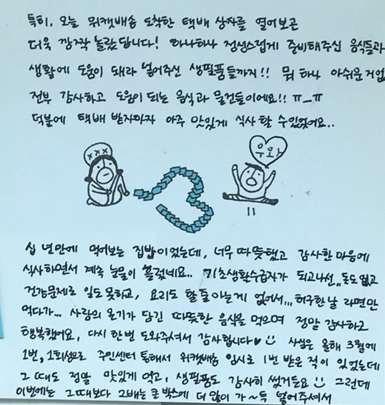 특히, 오늘 위캐배송 도착한 택배 상자를 열어보곤
더욱 깜짝 놀랐답니다! 하나하나 정성스럽게 준비해주신 음식들과
생활에 도움이 돼라 넣어주신 생필품들까지!! 뭐 하나 아쉬운 거 없
전부 감사하고 도움이 되는 음식과 물건들이에요!! ㅠ_ㅠ
덕분에 택배 받자마자 아주 맛있게 식사 할 수 있었어요..
우와
십 년만에 먹어보는 집밥이었는데, 너무 따뜻했고 감사한 마음에
식사하면서 계속 눈물이 흘렀네요.. 기초생활수급자가 되고나선, 돈도 없고
건강문제로 일도 못하고, 요리도 할 줄 아는게 없어서... 허구한 날 라면만
먹다가... 사람의 온기가 담긴 따뜻한 음식을 먹으며 정말 감사하고
행복했어요, 다시 한번 도와주셔서 감사합니다♥ 사실은 올해 3월에
1번, 1회성으로 주민센터 통해서 위캐배송 임시로 1번 받은 적이 있었는데
그 때도 정말 맛있게 먹고, 생필품도 감사히 썼거든요 그런데
이번에는 그때보다 2배는 큰 박스에 더 많이 가~득 넣어주셔서